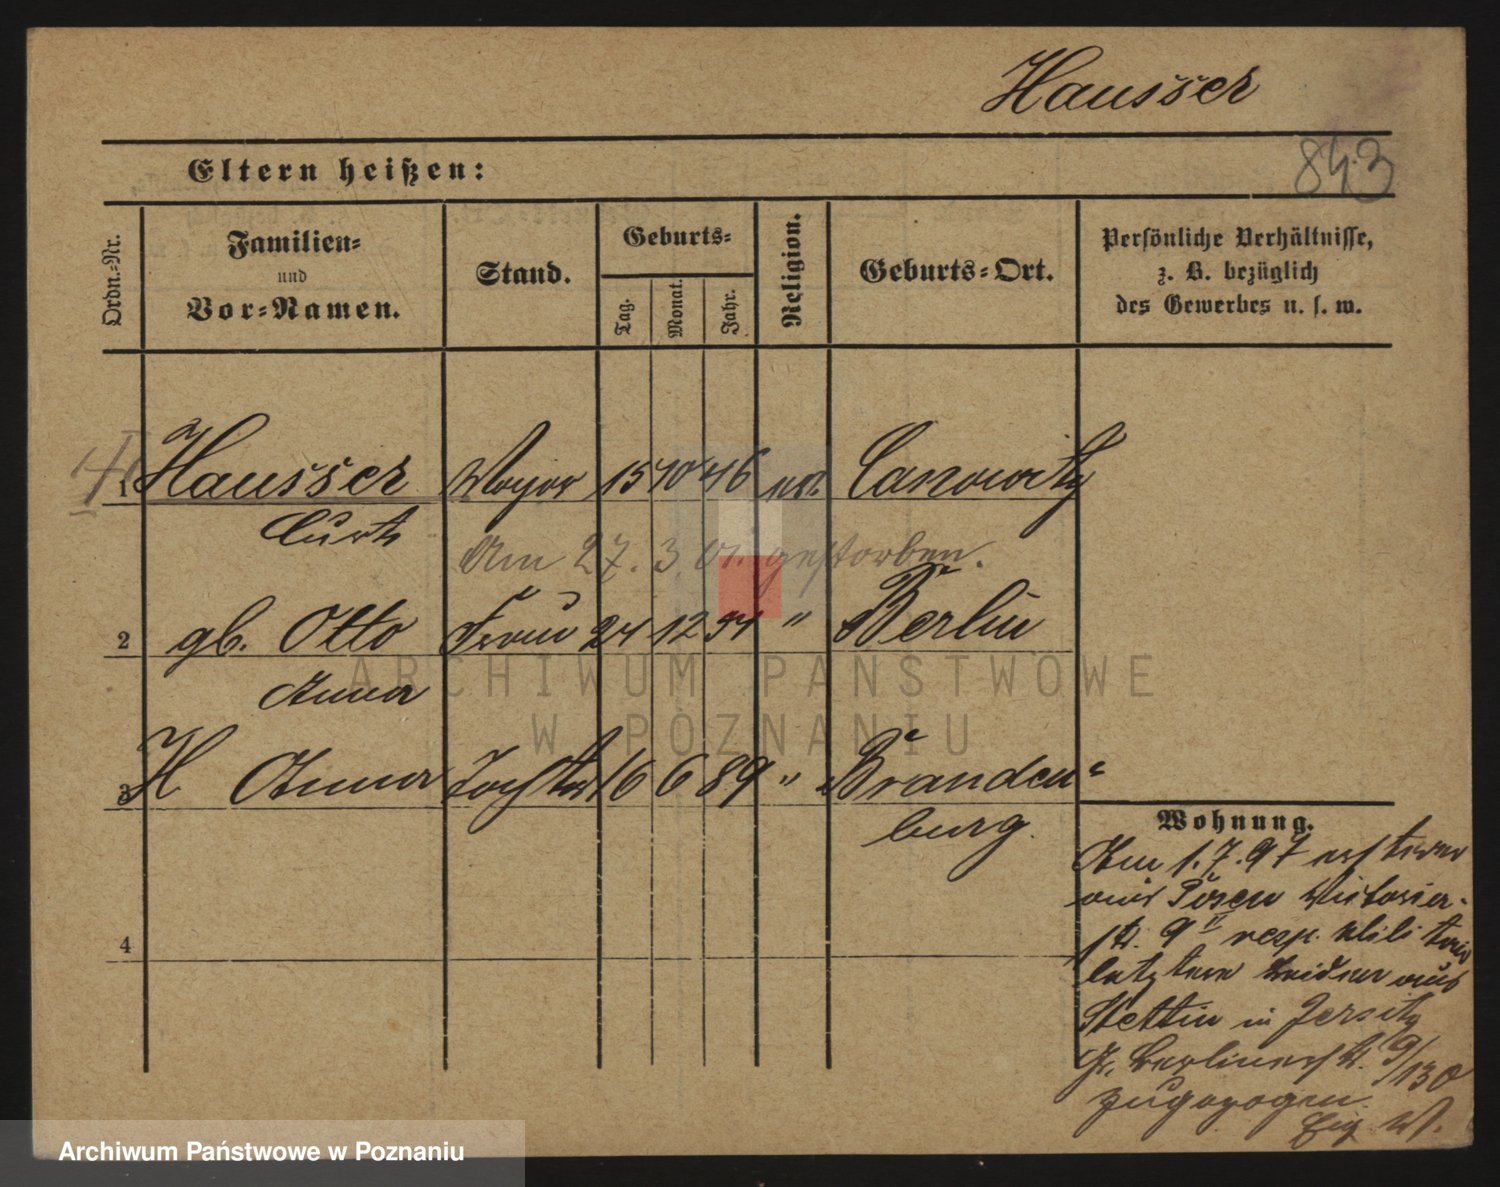 Hausser
843
Eltern heißen:
Ordn.-Nr.
Familien-
und
Vor-Namen.
Stand.
Geburts-
Tag.
Monat.
Jahr.
Religion.
Geburts-Ort.
Persönliche Verhältnisse,
z. B. bezüglich
des Gewerbes u. s. w.
1 Hausser Major 15 10 46 ev. Canowitz
Curt
Am 27. 3. 01. gestorben.
2 gb. Otto Frau 24 12 54 " Berlin
Anna
3 H Anna Tochter 16 6 89 " Branden-
burg.
4
Wohnung.
Am 1.7.97 ersterer
aus Posen Victoria-
str. 9 II resp.
letztere beiden aus
Stettin in Jersitz
Gr. Berlinerstr. 9/130
zugezogen.
ARCHIWUM PAŃSTWOWE
W POZNANIU
Archiwum Państwowe w Poznaniu